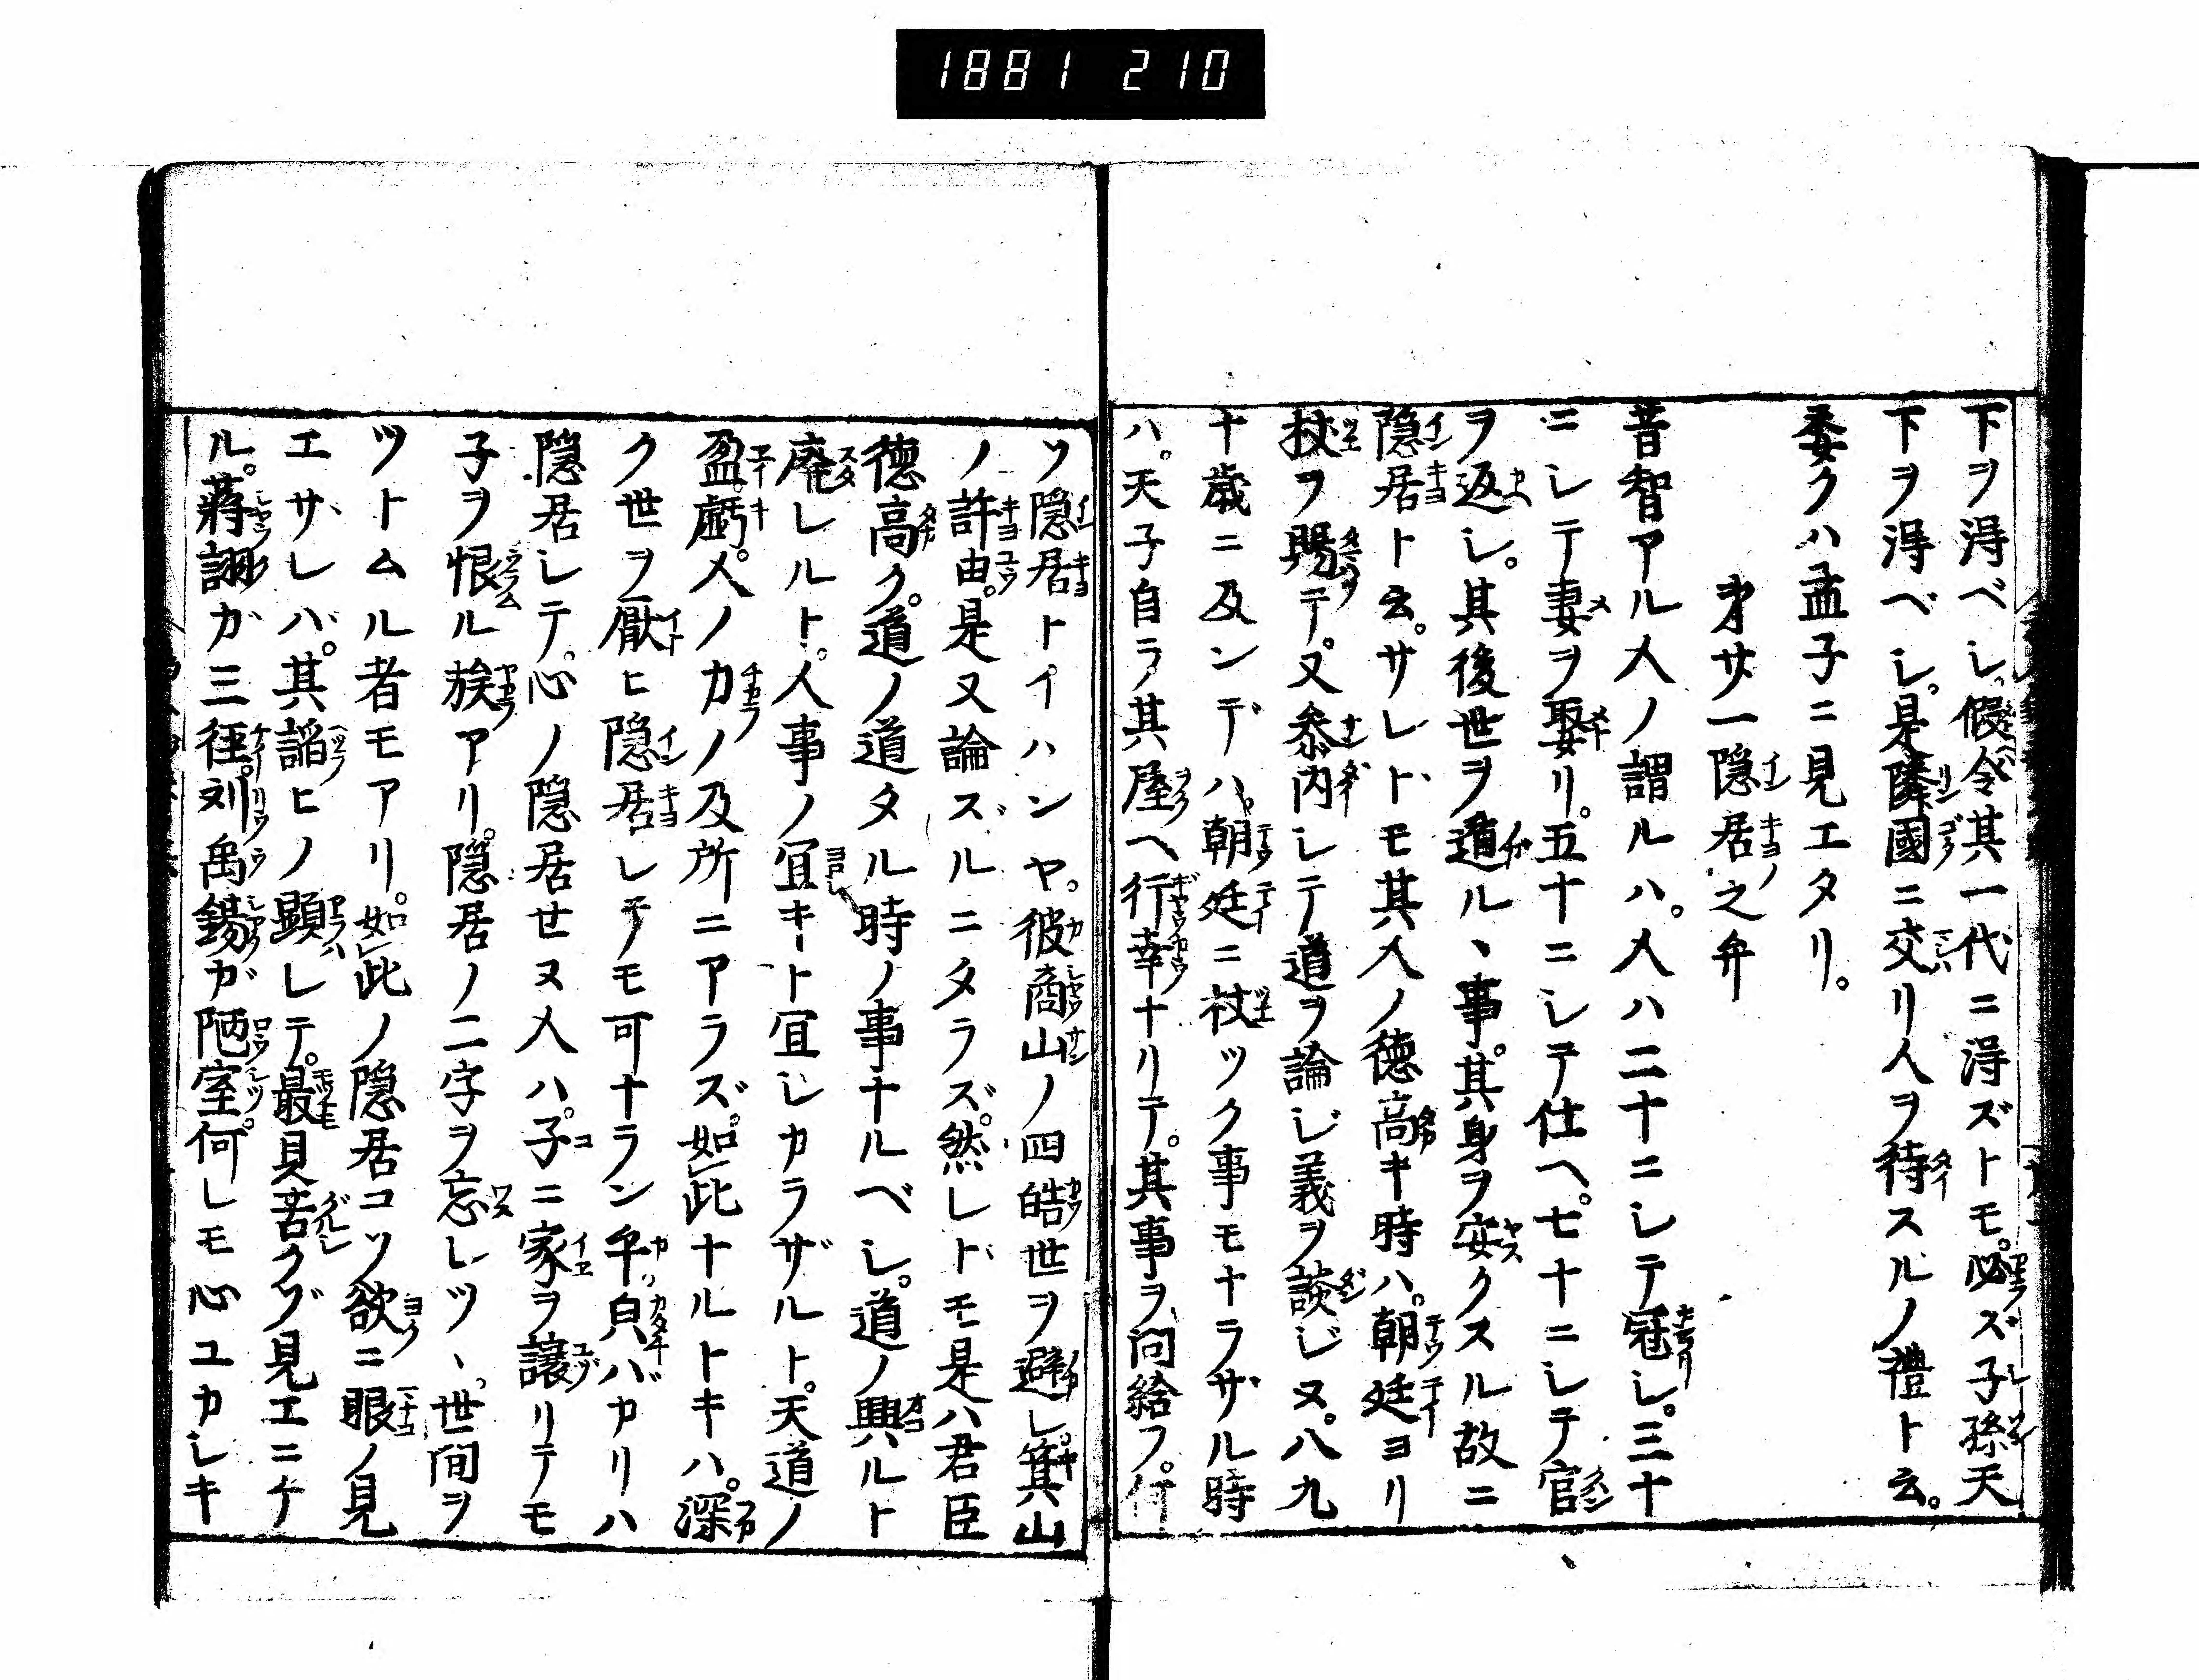 1881 210
下ヲ淂ベシ。假令其一代ニ淂ズトモ。必ズ子孫天
下ヲ淂ベシ。是隣國ニ交リ人ヲ待スルノ禮ト云。
委クハ孟子ニ見エタリ。
才廿一隠居之弁
昔智アル人ノ謂ルハ。人ハ二十ニシテ冠シ。三十
ニシテ妻ヲ娶リ。五十ニシテ仕ヘ。七十ニシテ官
ヲ返シ。其後世ヲ遁ルヽ事。其身ヲ安クスル故ニ
隠居ト云。サレトモ其人ノ德高キ時ハ。朝廷ヨリ
杖ヲ賜テ。又參内シテ道ヲ論ジ義ヲ談ジヌ。八九
十歳ニ及ンデハ。朝廷ニ杖ツク事モナラザル時
ハ。天子自ラ其屋ヘ行幸ナリテ。其事ヲ問給フ。何
ソ隠居トイハンヤ。彼商山ノ四皓世ヲ避シ。箕山
ノ許由。是又論ズルニタラズ。然レドモ是ハ君臣
德高ク。道ノ道タル時ノ事ナルベシ。道ノ興ルト
廃レルト。人事ノ宜キト宜シカラザルト。天道ノ
盈虧。人ノ力ノ及所ニアラズ。如此ナルトキハ。深
ク世ヲ厭ヒ隠居シテモ可ナラン乎。皃バカリハ
隠居シテ。心ノ隠居セヌ人ハ。子ニ家ヲ讓リテモ
子ヲ恨ル族アリ。隠居ノ二字ヲ忘レツヽ。世間ヲ
ツトムル者モアリ。如此ノ隠居コソ欲ニ眼ノ見
エザレバ。其諂ヒノ顕レテ。最見苦クゾ見エニケ
ル。蒋詡ガ三徑。刘禹錫ガ陋室。何レモ心ユカシキ